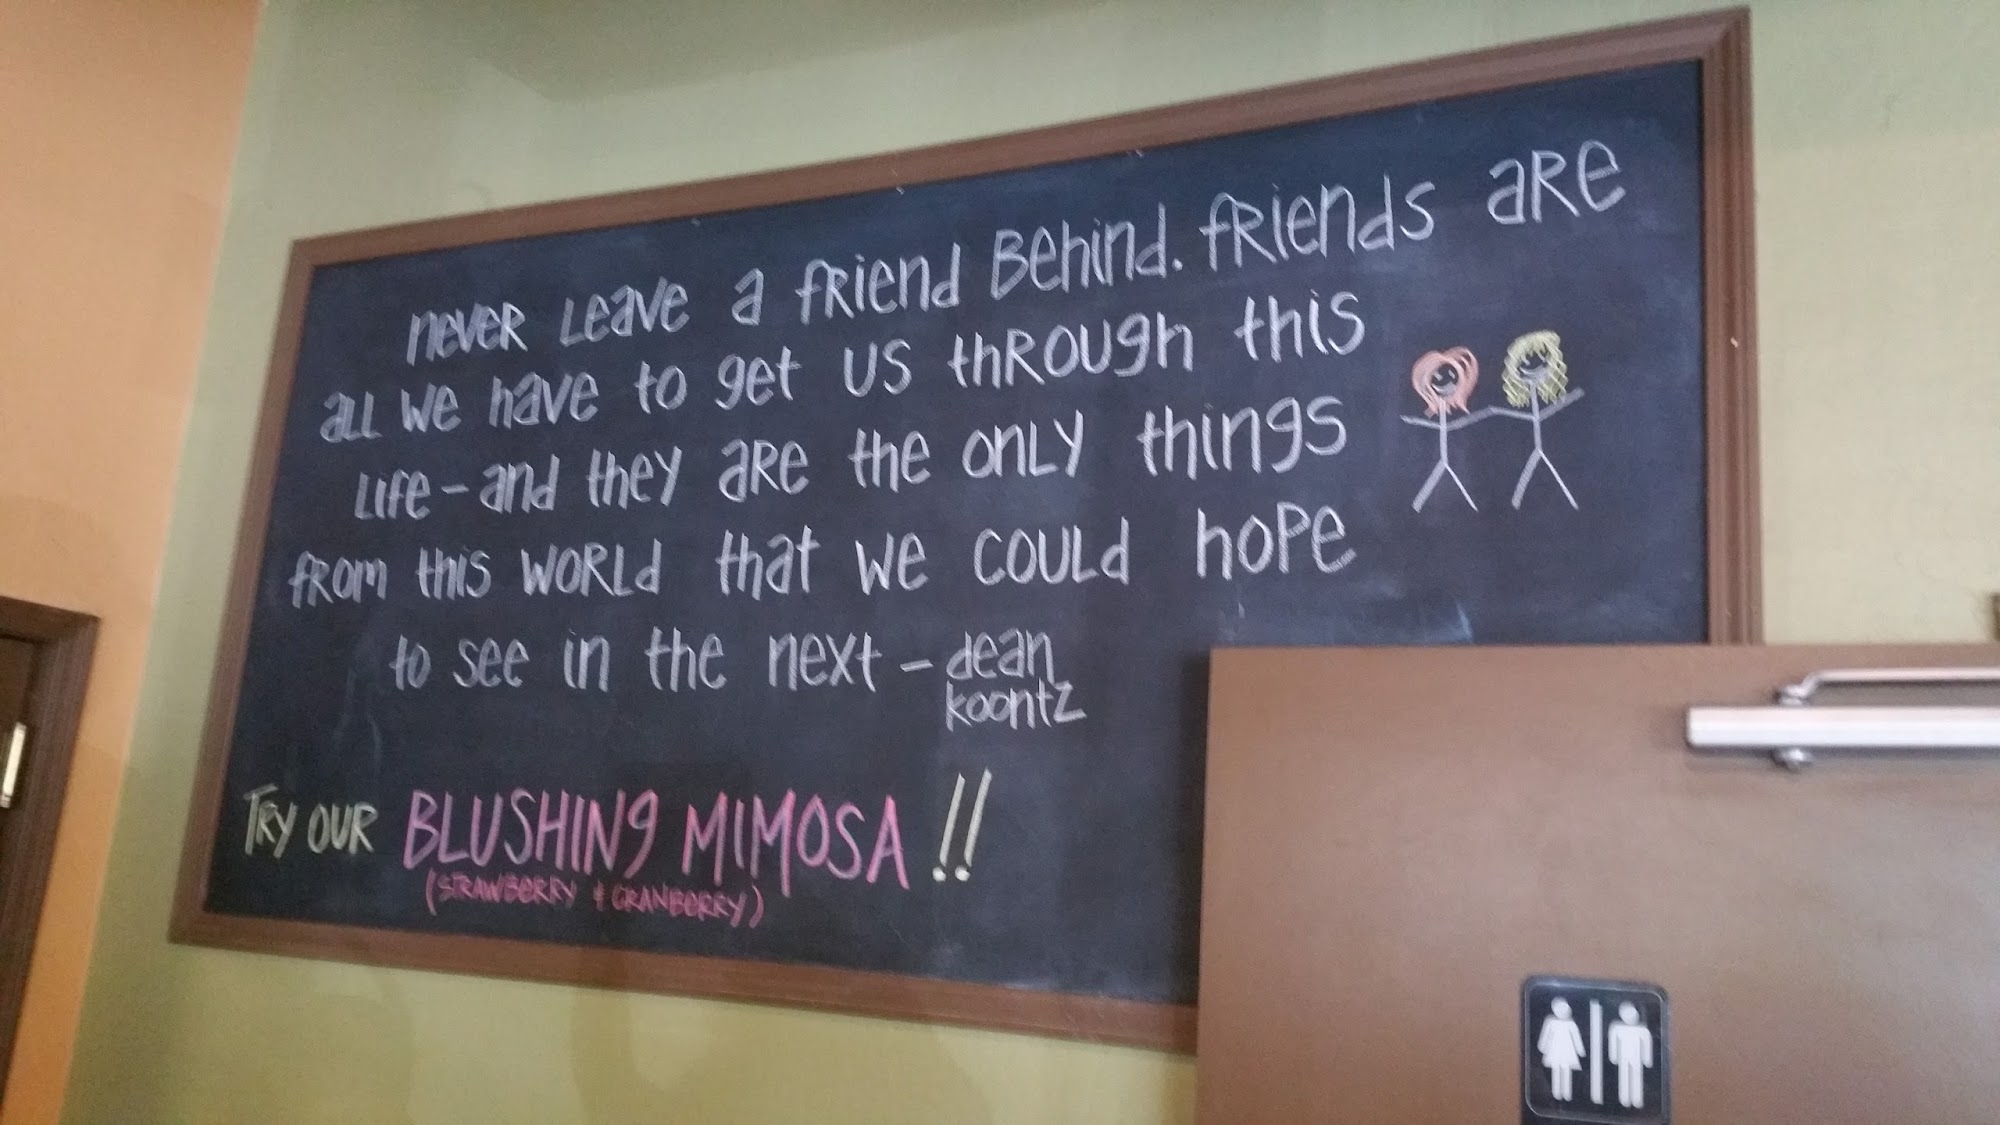 never Leave a friend Behind. friends are
all we have to get us through this
Life - and they are the only things
from this world that we could hope
to see in the next - dean
koontz
Try our BLUSHING MIMOSA !!
(STRAWBERRY & CRANBERRY)